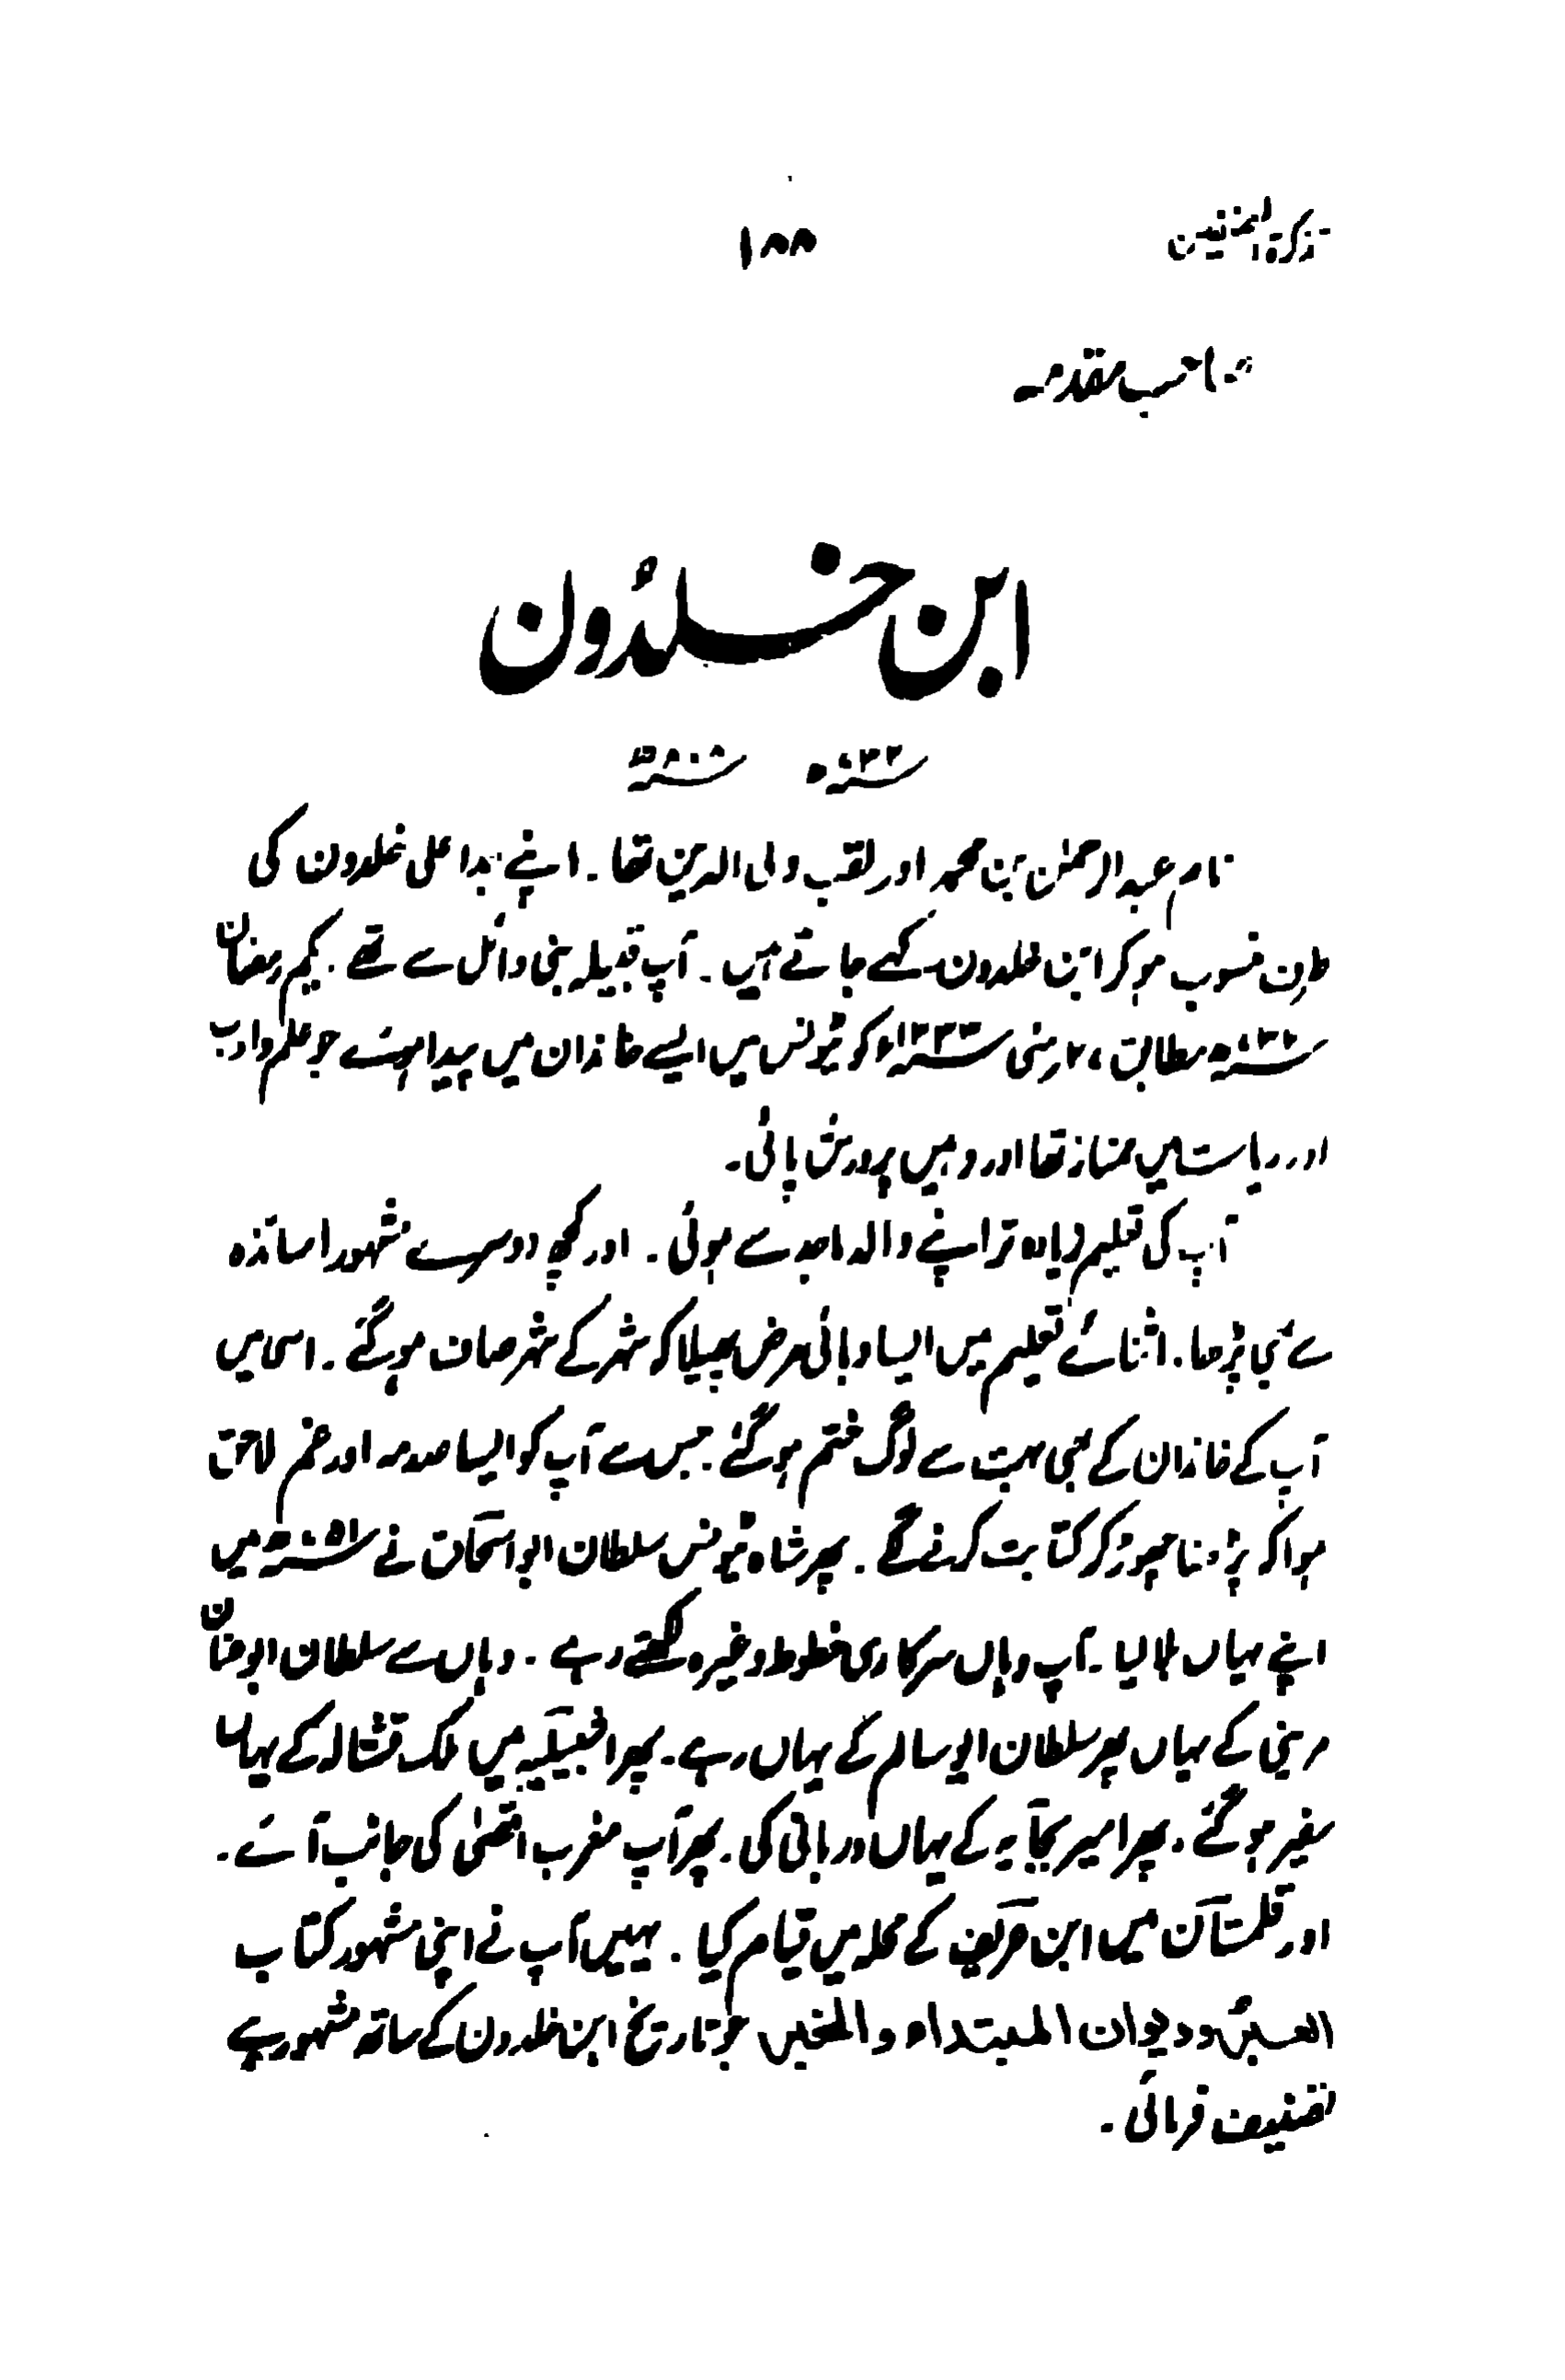 تذکرۃ المصنفین
۱۸۸
صاحب مقدمہ
ابن خلدُون
۷۳۲ھ ۸۰۸ھ
نام عبدالرحمٰن بن محمد اور لقب ولی الدین تھا ۔ اپنے جداعلی خلدون کی
طرف منسوب ہوکر ابن خلدون کہے جاتے ہیں ۔ آپ قبیلہ بنی وائل سے تھے ۔ یکم رمضان
۷۳۲ھ مطابق ۲۷ مئی ۱۳۳۲ء کو تیونس میں ایسے خاندان میں پیدا ہوئے جو علم وادب
اور ریاست میں ممتاز تھا اور وہیں پرورش پائی ۔
آپ کی تعلیم زیادہ تر اپنے والد ماجد سے ہوئی ۔ اور کچھ دوسرے مشہور اساتذہ
سے بھی پڑھا ۔ اثنائے تعلیم میں ایسا وبائی مرض پھیلا کہ شہر کے شہر صاف ہوگئے ۔ اسی میں
آپ کے خاندان کے بھی بہت سے لوگ ختم ہوگئے ۔ جس سے آپ کو ایسا صدمہ اور غم لاحق
ہوا کہ پڑھنا چھوڑ کر کتابت کرنے لگے ۔ پھر شاہ تیونس سلطان ابو اسحاق نے میں
اپنے یہاں بلالیا ۔ آپ وہاں سرکاری خطوط وغیرہ لکھتے رہے ۔ وہاں سے سلطان ابوعنان
مرینی کے یہاں پھر سلطان ابو سالم کے یہاں رہے ۔ پھر اشبیلیہ میں ملک قشتالہ کے یہاں
سفیر ہوگئے ۔ پھر امیر بجایہ کے یہاں دربانی کی ۔ پھر آپ مغرب اقصیٰ کی جانب آئے ۔
اور میں ابن عریف کے محلہ میں قیام کیا ۔ یہیں آپ نے اپنی مشہور کتاب
العبر ودیوان المبتداء والخبر جو تاریخ ابن خلدون کے ساتھ مشہور ہے
تصنیف فرمائی ۔